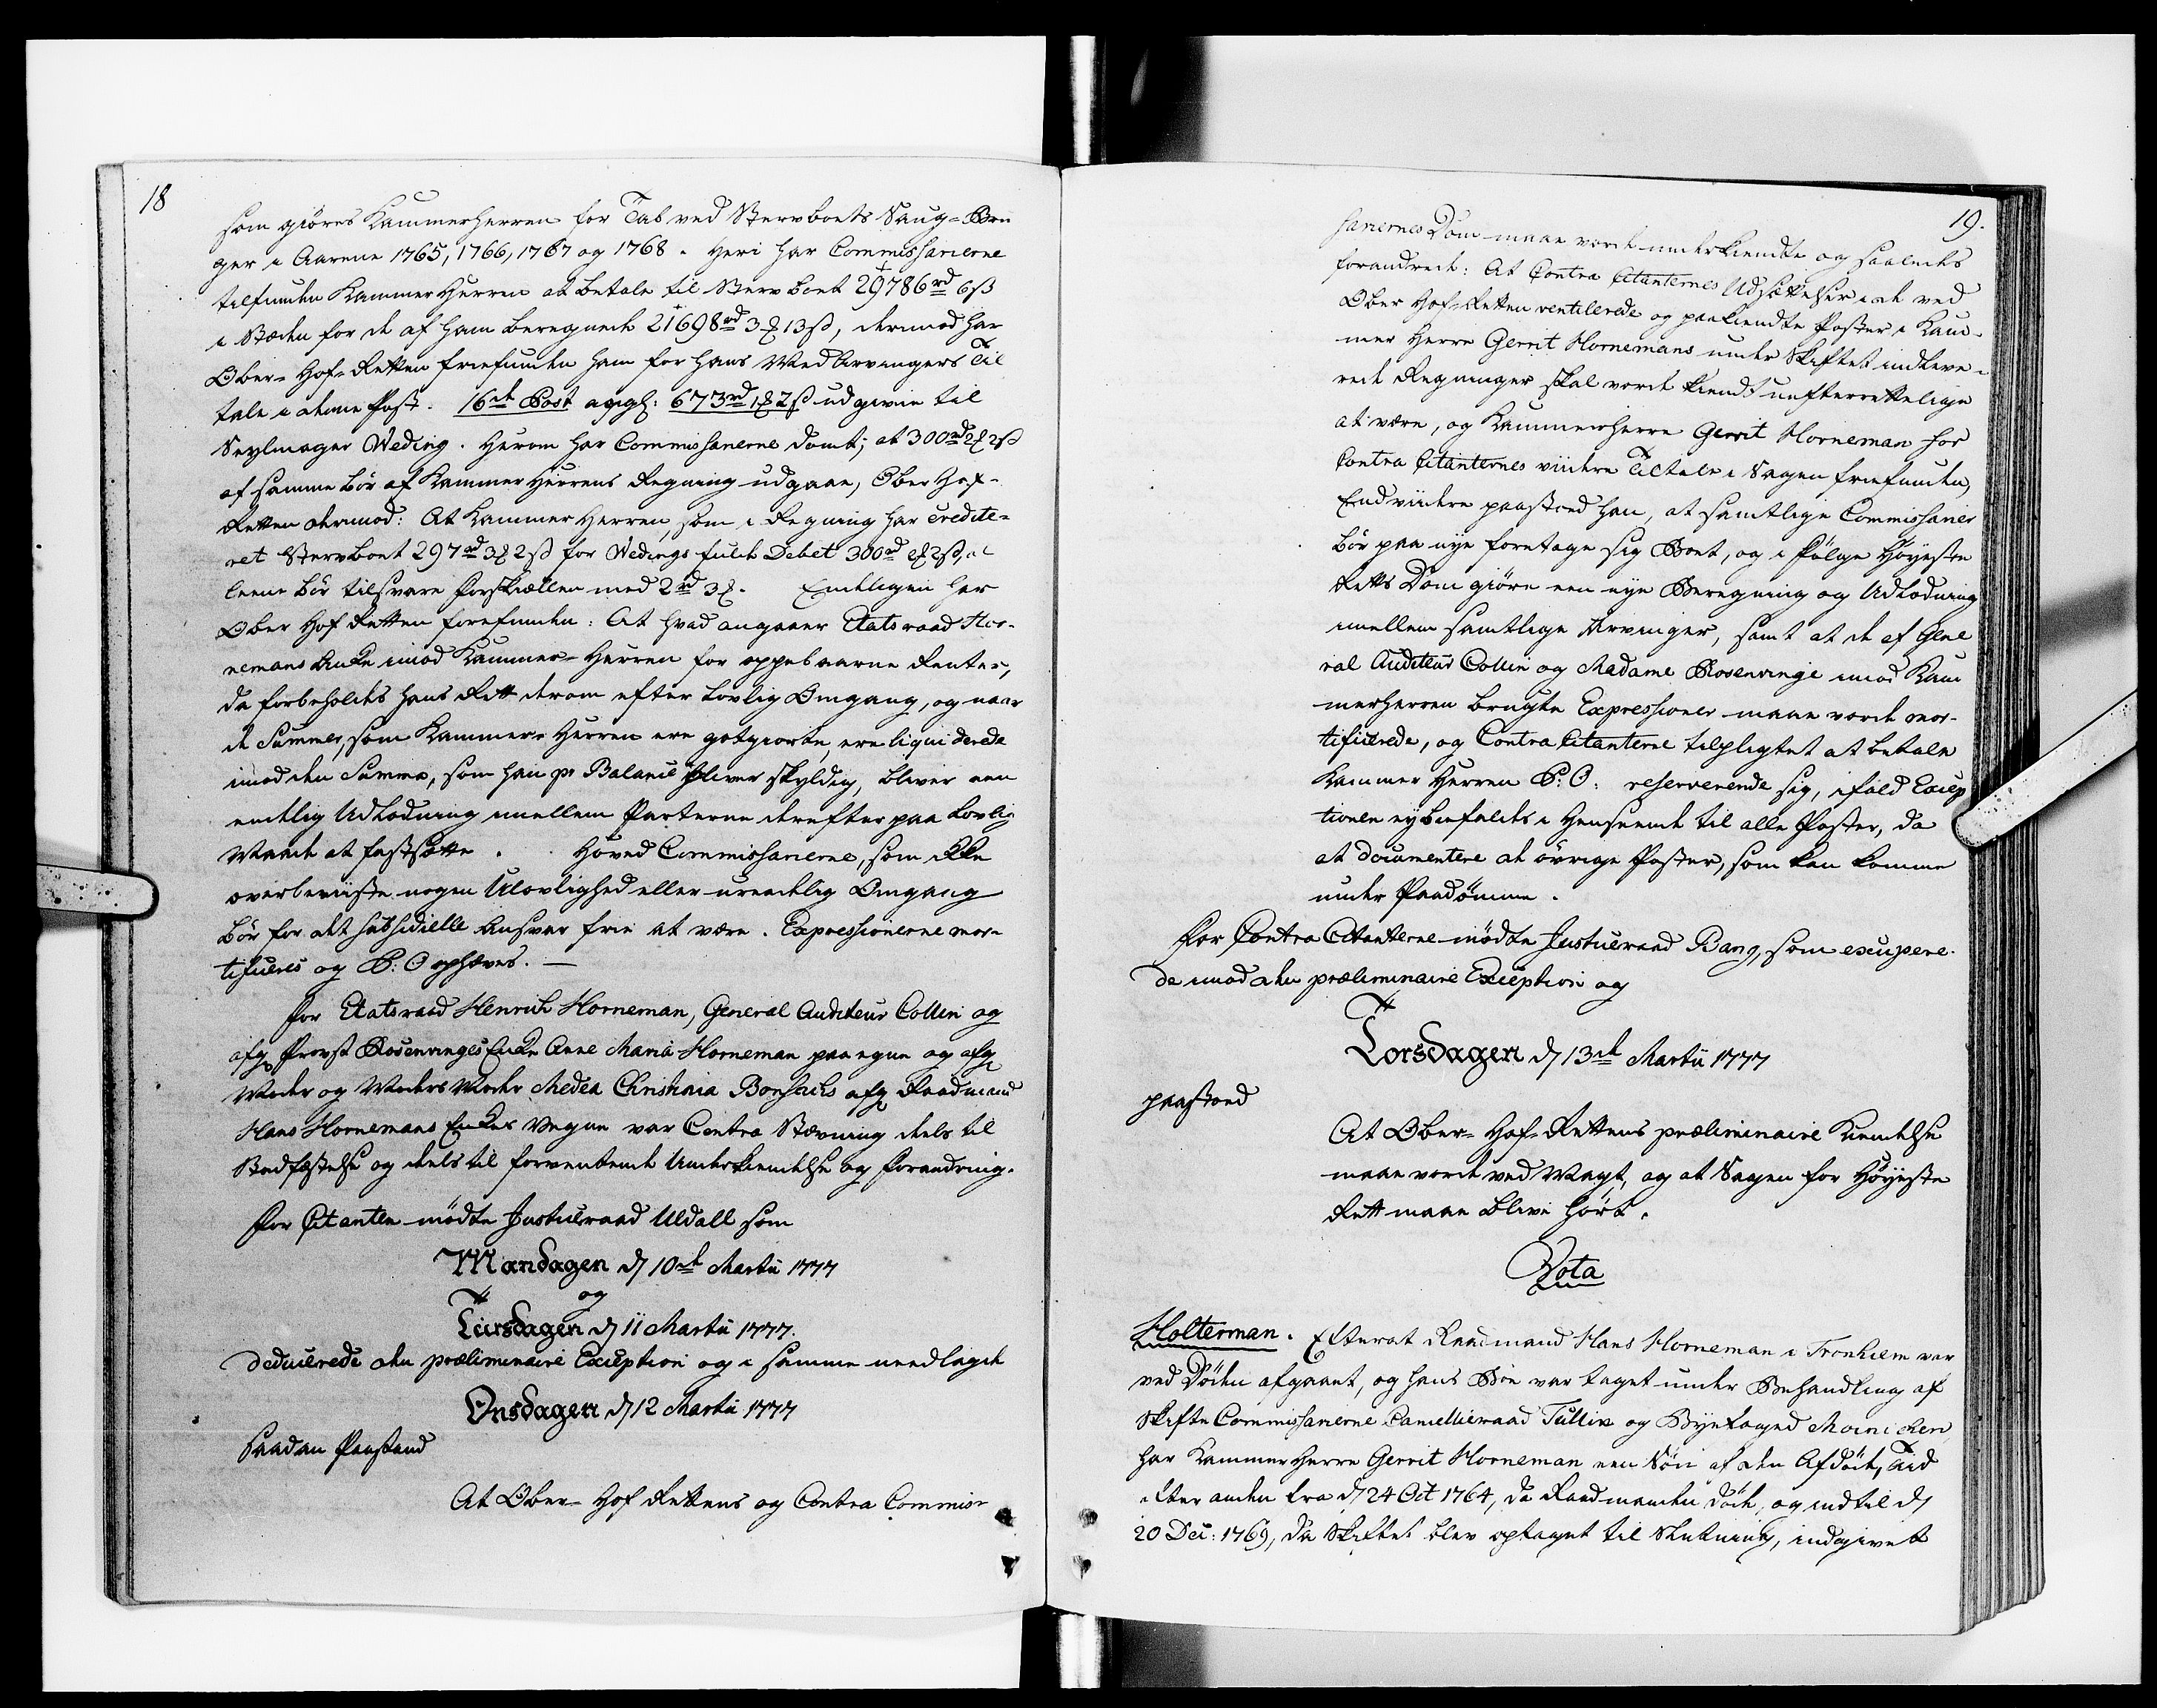 18
som giöres Kammerherren for Tab ved Stervboets Saug-Brü
ger i Aarene 1765, 1766, 1767 og 1768. Heri har Commissarierne
tilfunden Kammer Herren at betale til Stervboet 29786 rd 6 ß
i Stæden for de af ham beregnede 21698 rd 3 ₰ 13 ß, derimod har
Ober-Hof-Retten friefunden ham for hans Medarvingers Til
tale i denne Post. 16de Post angl: 673 rd 1 ₰ 2 ß udgivne til
Seylmager Weding. Herom har Commissarierne dömt; at 300 rd 2 ₰ 2 ß
af samme bör af Kammer Herrens Regning udgaae, Ober Hof-
Retten derimod: At Kammer Herren, som i Regning har credite-
ret Stervboet 297 rd 3 ₰ 2 ß for Wedings fulde Debet 300 rd 2 ₰ 2 ß, al
leene bör tilsvare forskiællen med 2 rd 3 ₰. Endeligen har
Ober Hof Retten forefunden: At hvad angaaer Etatsraad Hor-
nemans Anke imod Kammer-Herren for oppebaarne Renter,
da forbeholdes hans Rett derom efter lovlig Omgang, og naar
de Summer, som Kammer-Herren ere gotgiorte, ere liqviderede
imod den Summa, som han pr Balance bliver skyldig, bliver een
endelig Udlodning imellem Parterne derefter paa lovlig
Maade at fastsætte. Hoved Commissarierne, som ikke
overbeviiste nogen Ulovlighed eller uredelig Omgang
bör for det subsidielle Ansvar frie at være. Expressionerne mor-
tificeres og P: O ophæves. —
For Etatsraad Henrich Horneman, General Auditeur Collin og
afg Provst Rosenvinges Enke Anne Maria Horneman paa egne og afg
Moder og Moders Moder Medea Christinia Bonsachs afg Raadmand
Hans Hornemans Enkes Vegne var Contra Stævning deels til
Stadfæstelse og deels til forventende Underkiendelse og Forandring.
For Citanten mödte Justicraad Uldall som
Mandagen d 10de Martii 1777
og
Tiirsdagen d 11 Martii 1777.
deducerede den præliminaire Exception og i samme needlagde
Onsdagen d 12 Martii 1777
saadan Paastand
At Ober-Hof Rettens og Contra Commis-
19.
sariernes Dom maae vorde underkiendte og saaledes
forandrede: At Contra Citanternes Udsættelser i de ved
Ober Hof-Retten ventillerede og paakiendte Poster i Kam-
mer Herre Gerrit Hornemans under Skiftet indleve-
rede Regninger skal vorde kiendt uefterrettelige
at være, og Kammerherre Gerrit Horneman for
Contra Citanternes viidere Tiltale i Sagen friefunden,
Endviidere paastoed han, at samtlige Commissarier
bör paa nye foretage sig Boet, og i Fölge Höyeste
Retts Dom giöre een nye Beregning og Udlodning
imellem samtlige Arvinger, samt at de af Gene
ral Auditeur Collin og Madame Rosenvinge imod Kam
merherren brugte Expressioner maae vorde mor-
tificerede, og Contra Citanterne tilpligtet at betale
Kammer Herren P: O: reserverende sig, ifald Excep
tionen ey biefaldes i Henseende til alle Poster, da
at documentere de övrige Poster, som kan komme
under Paadömme.
For Contra Citanterne mödte Justicraad Bang, som excipere-
de imod den præliminaire Exception og
Torsdagen d 13de Martii 1777
paastoed
At Ober-Hof-Rettens præliminaire Kiendelse
maae vorde ved Magt, og at Sagen for Höyeste
Rett maae blive hört.
Vota
Holterman. Efterat Raadmand Hans Horneman i Tronhiem var
ved Döden afgaaet, og hans Boe var taget under Behandling af
Skifte Commissarierne Cancellieraad Tullin og Byefoged Moinichen
har Kammer Herre Gerrit Horneman een Sön af den Afdöde, Tid
efter anden fra d 24 Oct 1764, da Raadmanden döde, og indtil d
20 Dec: 1769, da Skiftet blev optaget til Slutning, indgivet